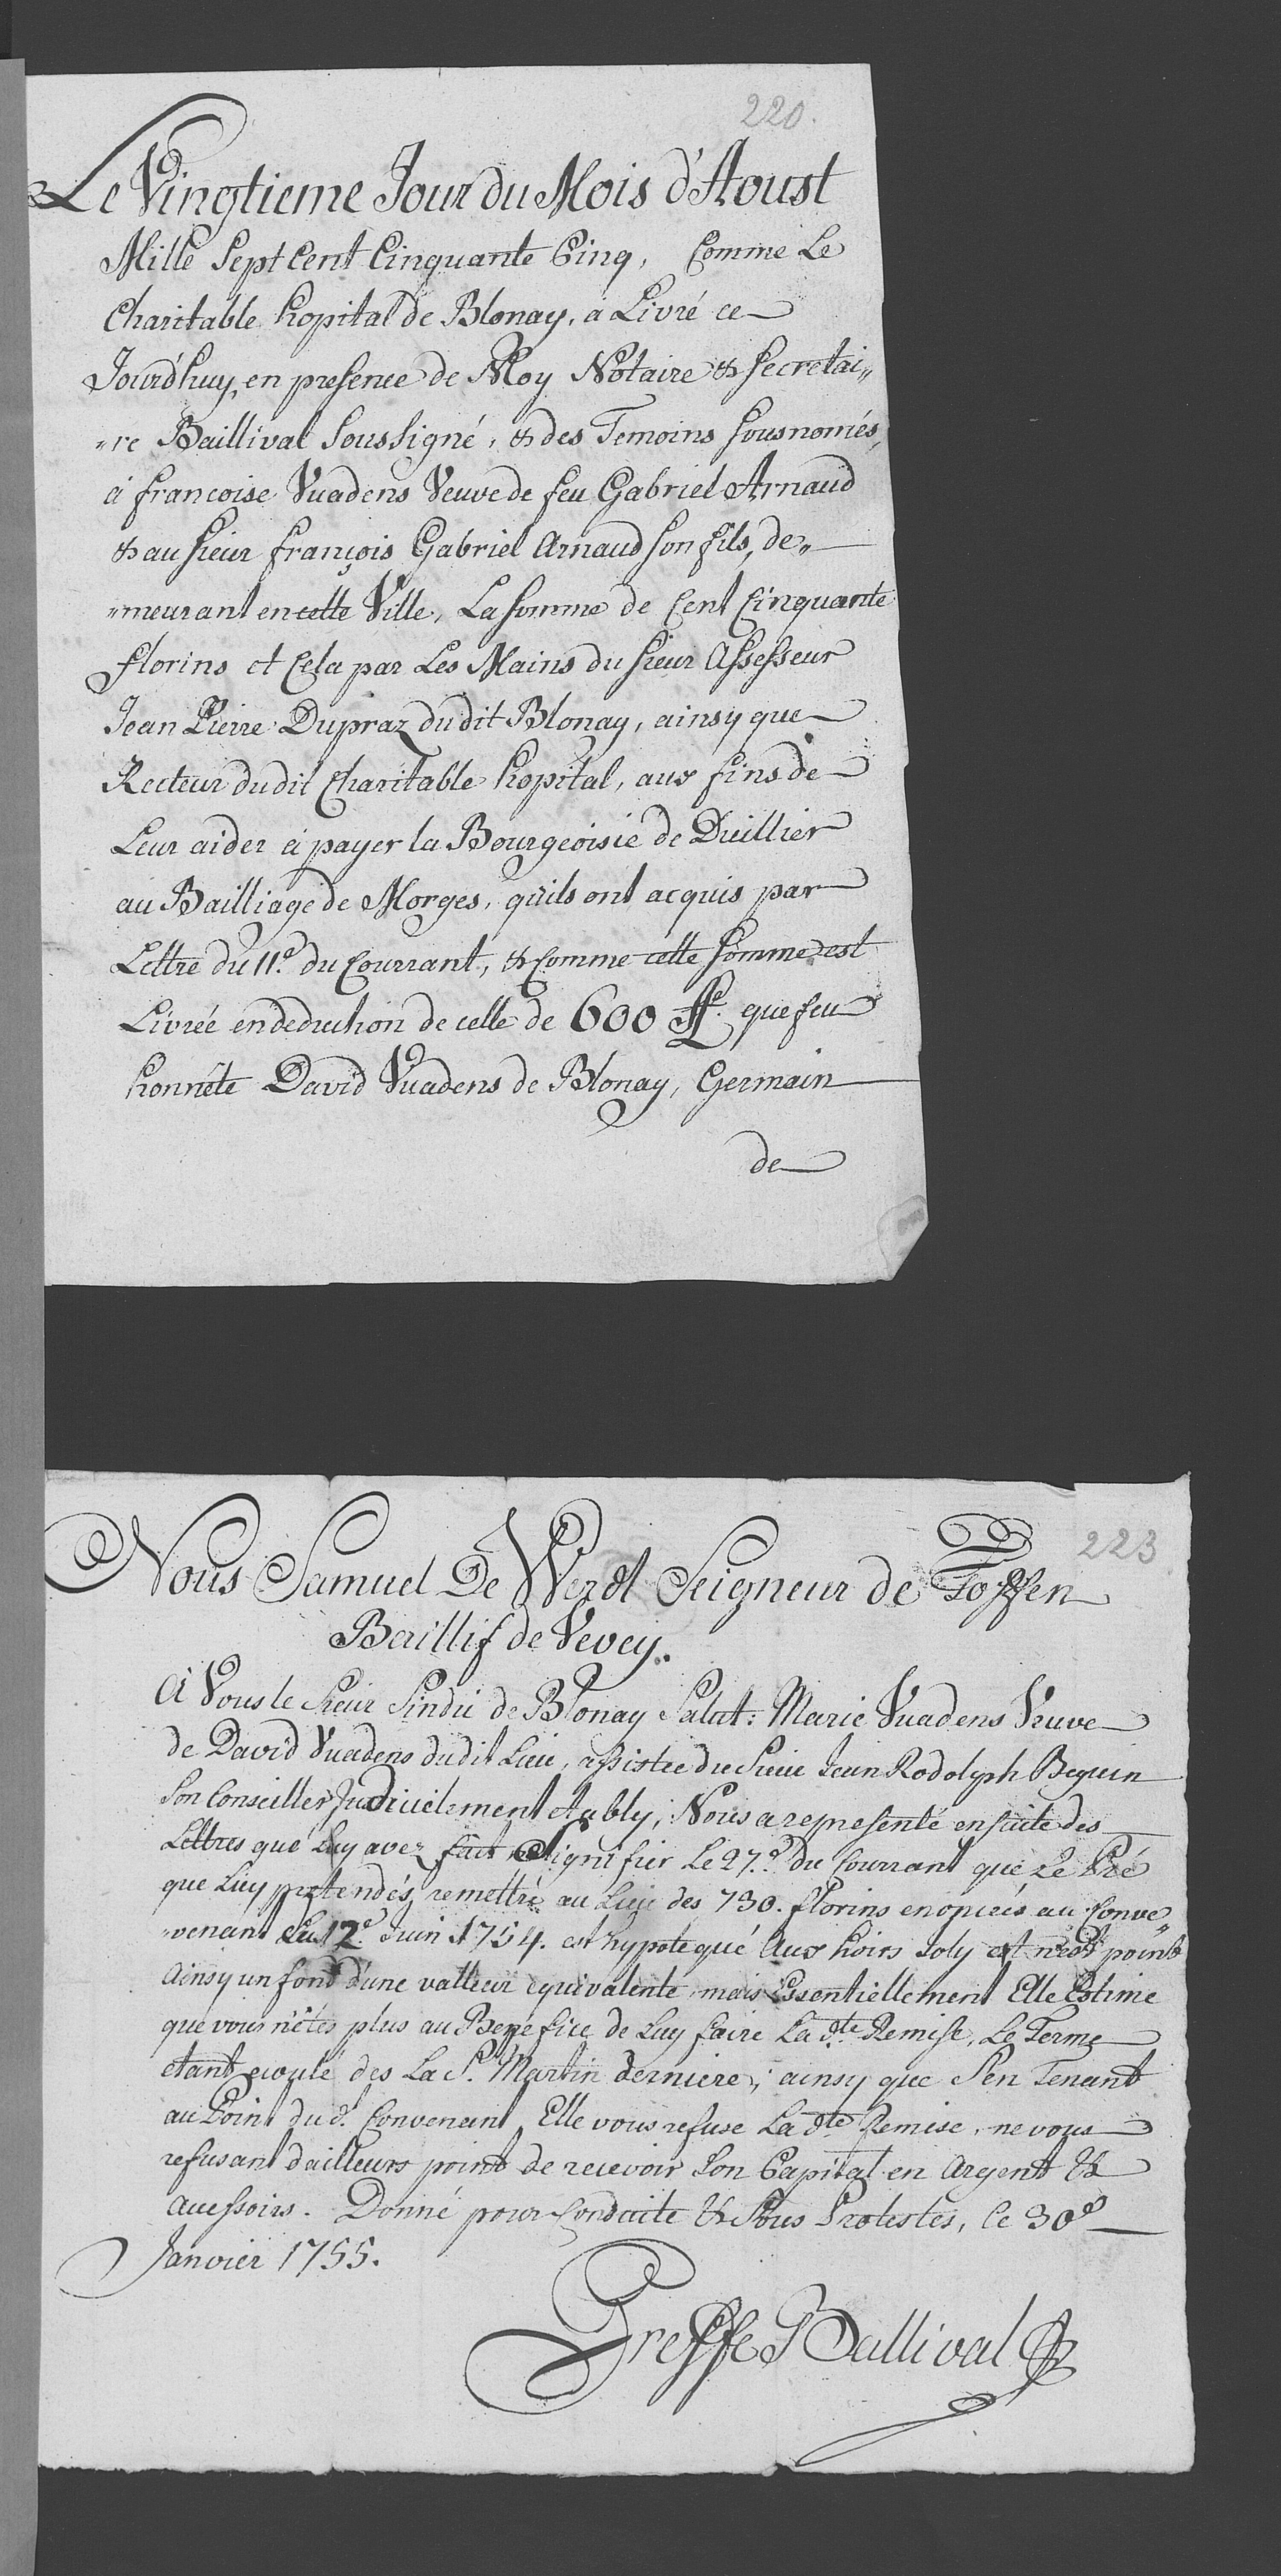 220.
Le Vingtieme Jour du Mois d'Aoust
Mille Sept Cent Cinquante Cinq, Comme Le
Charitable hopital de Blonay, a Livré ce
Jourd'huy, en presence de Moy Notaire & Secretai„
„re Baillival Soussigné, & des Temoins sousnomés,
à francoise Vuadens Veuve de feu Gabriel Arnaud
& au sieur françois Gabriel Arnaud son fils, de„
„meurant en cette Ville, La somme de Cent Cinquante
florins et Cela par Les Mains du sieur Assesseur
Jean Pierre Dupraz dudit Blonay, ainsy que
Recteur dudit Charitable hopital, aux fins de
Leur aider à payer la Bourgeoisie de Duillier
au Bailliage de Morges, qu'ils ont acquis par
Lettre du 11e. du Courrant, & Comme cette somme est
Livrée en deduction de celle de 600 ff. que feu
honnête David Vuadens de Blonay, Germain
de
223
Nous Samuel De Werdt Seigneur de Toffen
Baillif de Vevey.
A Vous le Sieur Sindic de Blonay Salut: Marie Vuadens Veuve
de David Vuadens dudit Lieu, assistée du Sieur Jean Rodolph Beguin
Son Conseiller Judiciellement etably; Nous a representé ensuite des
Lettres que Luy avez fait Signifier Le 27e. du Courrant que Le Pré
que Luy pretendés remettre au Lieu des 730. florins enoncés au Conve„
„nant du 12e Juin 1754. est hypotequé Aux hoirs Joly et n'est point
Ainsy un fond d'une valleur equivalente, mais Essentiellement Elle Estime
que vous n'êtes plus au Benefice de Luy faire La dte Remise, Le Terme
etant ecoulé des La St. Martin derniere; ainsy que S'en Tenant
au Point dud. Convenant, Elle vous refuse La dte Remise, ne vous
refusant d'ailleurs point de recevoir Son Capital en Argent &
accessoirs. Donné pour Conduite & Sous Protestes, Ce 30e
Janvier 1755.
Greffe Ballival